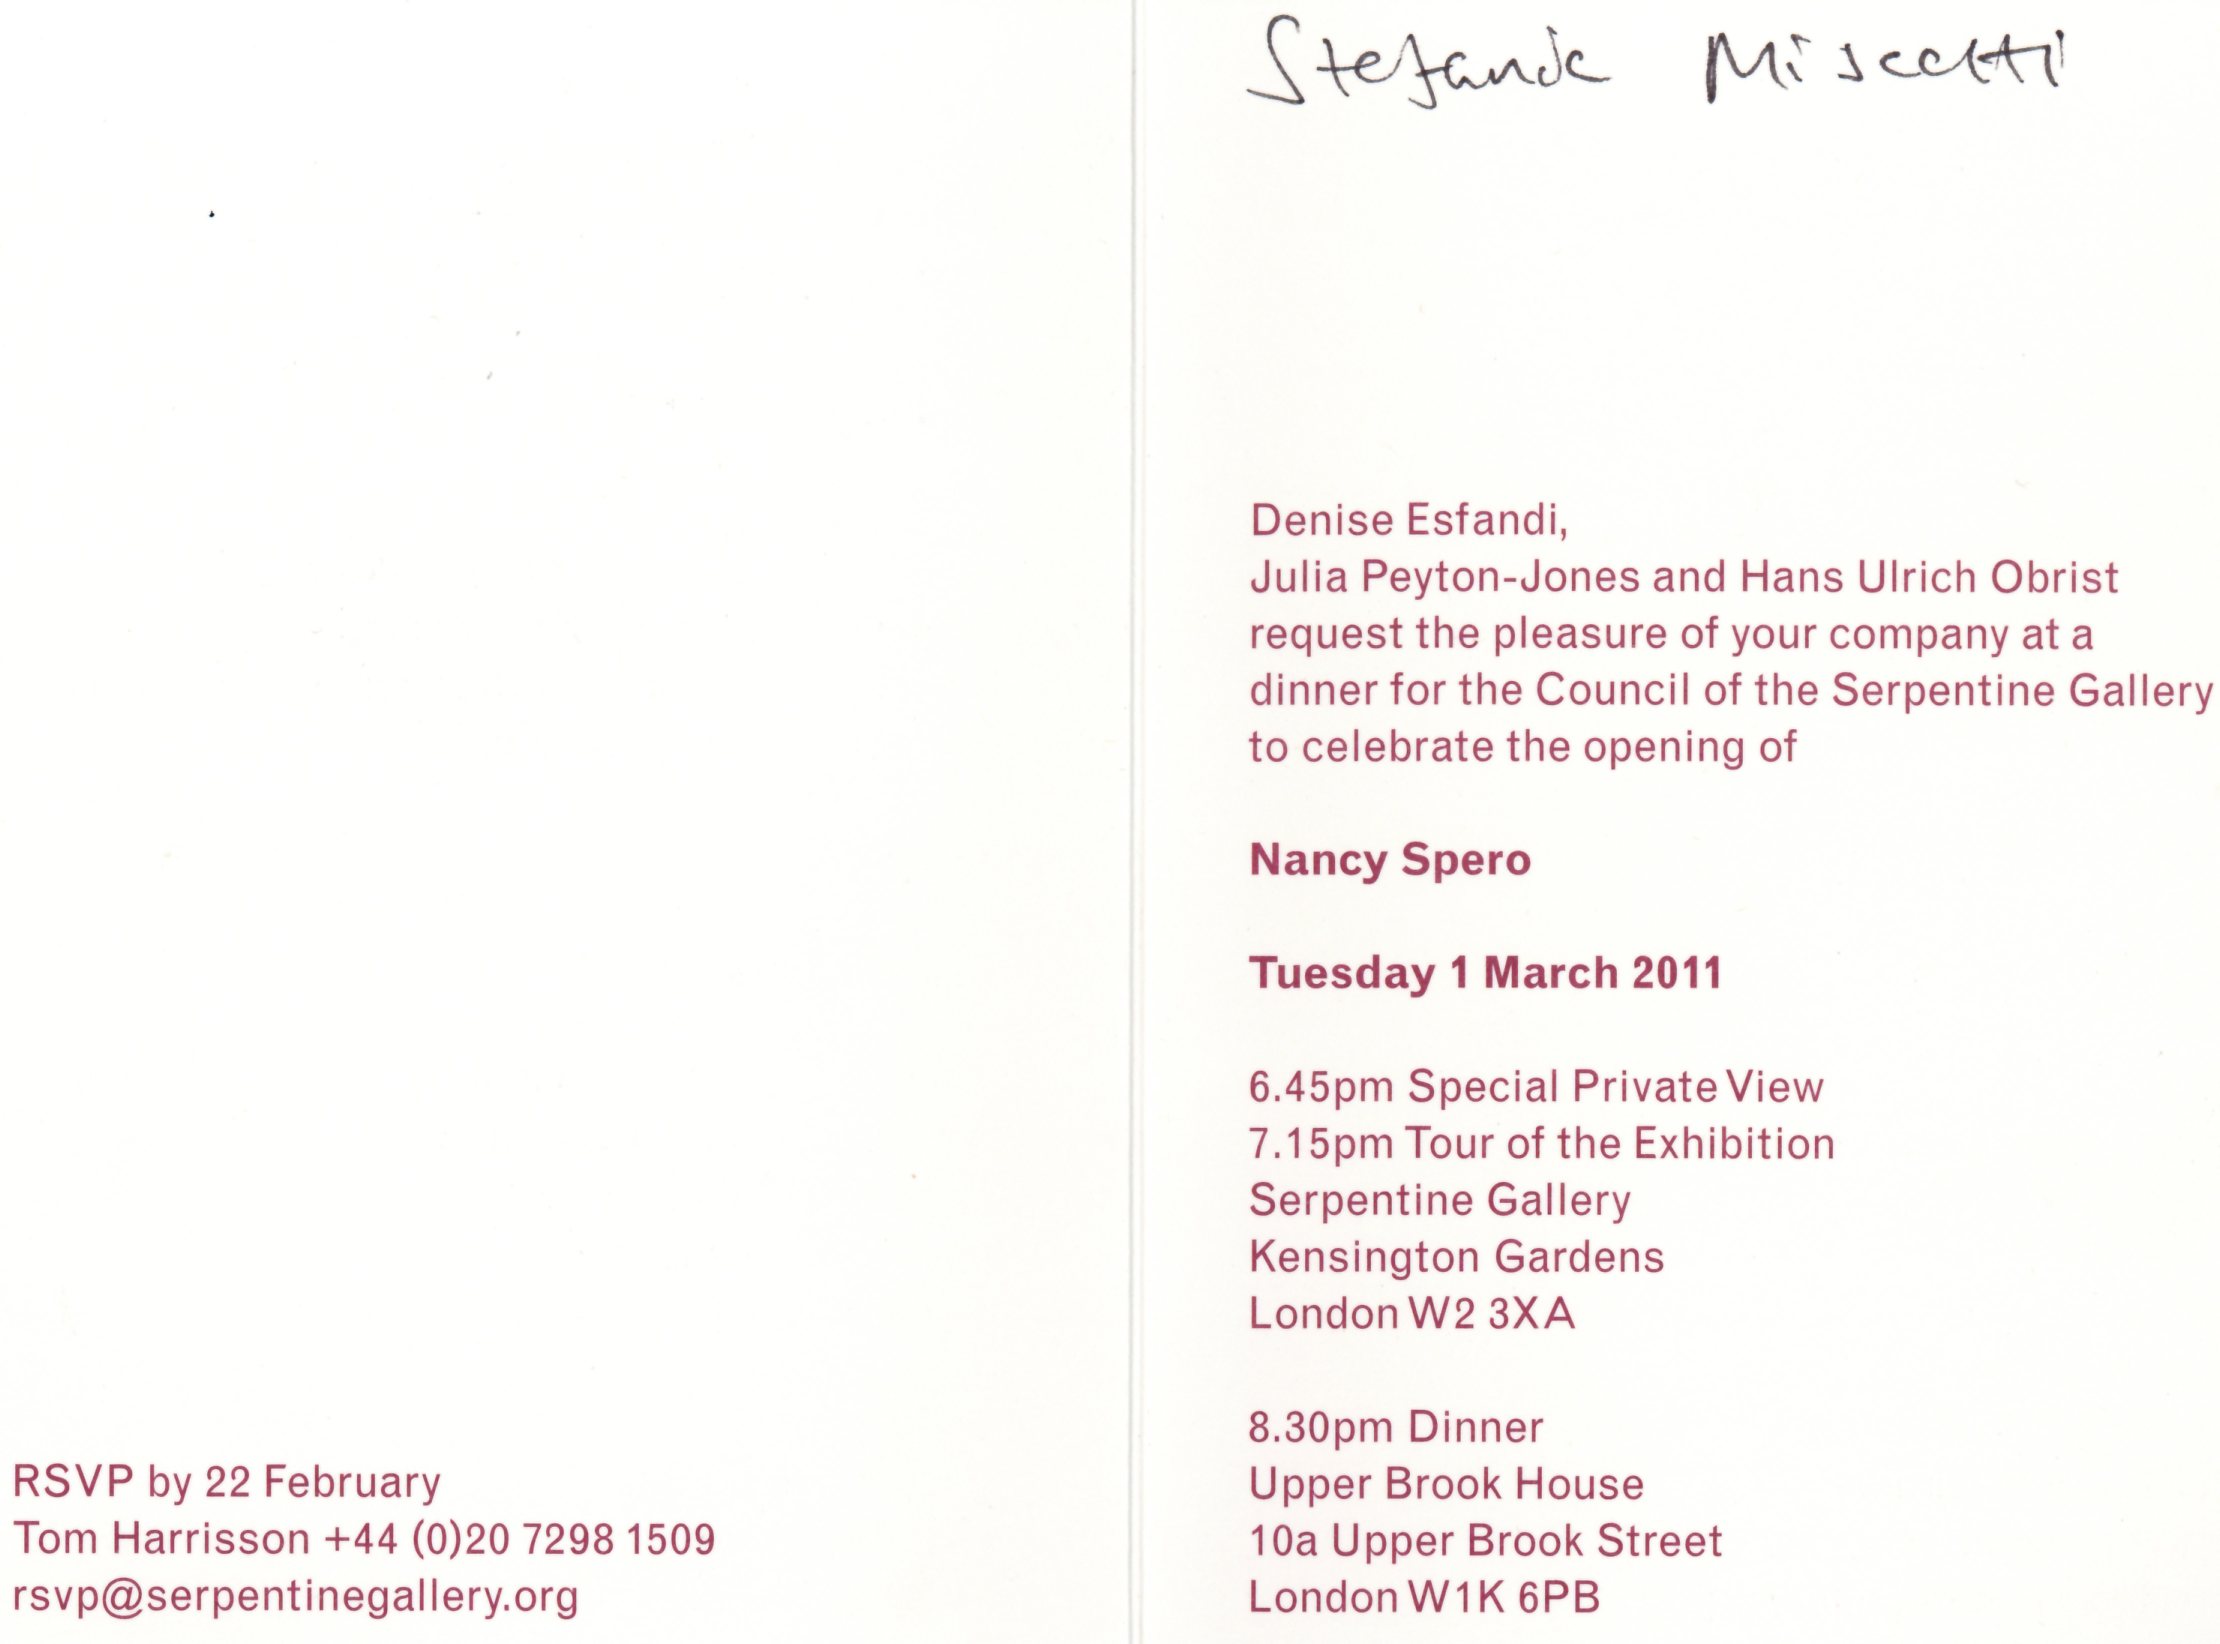 Stefania Miscetti
Denise Esfandi,
Julia Peyton-Jones and Hans Ulrich Obrist
request the pleasure of your company at a
dinner for the Council of the Serpentine Gallery
to celebrate the opening of
Nancy Spero
Tuesday 1 March 2011
6.45pm Special Private View
7.15pm Tour of the Exhibition
Serpentine Gallery
Kensington Gardens
London W2 3XA
8.30pm Dinner
Upper Brook House
10a Upper Brook Street
London W1K 6PB
RSVP by 22 February
Tom Harrisson +44 (0)20 7298 1509
rsvp@serpentinegallery.org